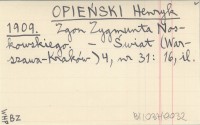 OPIEŃSKI Henryk
1909. Zgon Zygmunta Nos-
kowskiego. - Świat (War-
szawa-Kraków) 4, nr 31: 16, il.
WHP BZ